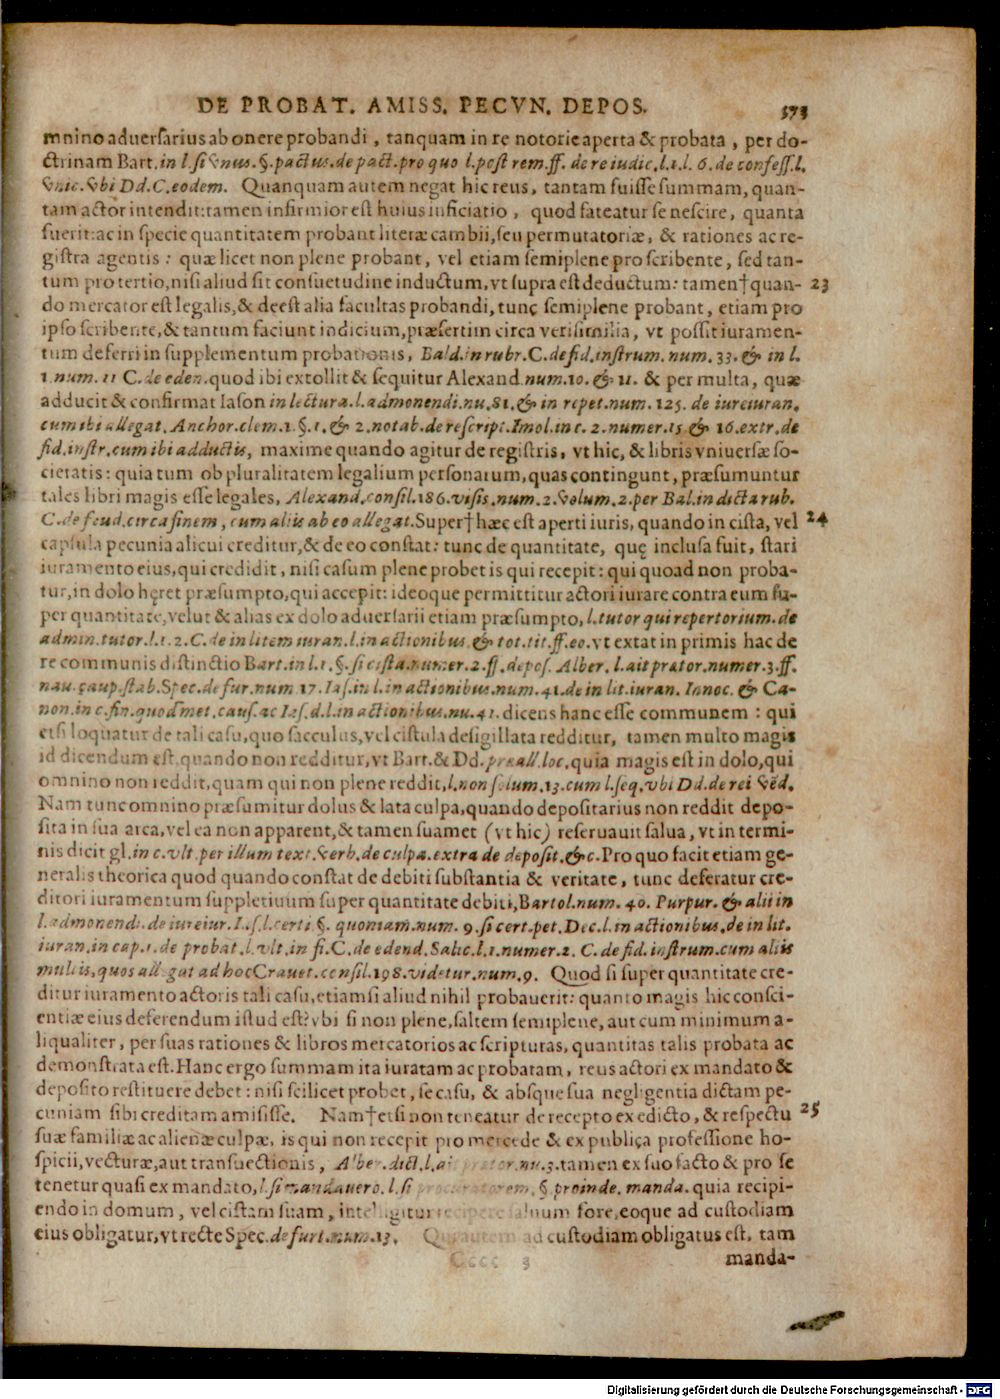 DE PROBAT. AMISS. PECVN. DEPOS. 573
mnino aduersarius ab onere probandi, tanquam in re notorie aperta & probata, per do-
ctrinam Bart. in l. si vnus. §. pactus. de pact. pro quo l. post rem. ff. de re iudic. l. 1. l. 6. de confess. l.
vnic. vbi Dd. C. eodem. Quanquam autem negat hic reus, tantam fuisse summam, quan-
tam actor intendit: tamen infirmior est huius inficiatio, quod fateatur se nescire, quanta
fuerit: ac in specie quantitatem probant literæ cambii, seu permutatoriæ, & rationes ac re-
gistra agentis: quæ licet non plene probant, vel etiam semiplene pro scribente, sed tan-
tum pro tertio, nisi aliud sit consuetudine inductum, vt supra est deductum: tamen† quan- 23
do mercator est legalis, & deest alia facultas probandi, tunc semiplene probant, etiam pro
ipso scribente, & tantum faciunt indicium, præsertim circa verisimilia, vt possit iuramen-
tum deferri in supplementum probationis, Bald. in rubr. C. de fid. instrum. num. 33. & in l.
1. num. 11 C. de eden. quod ibi extollit & sequitur Alexand. num. 10. & 11. & per multa, quæ
adducit & confirmat Iason in lectura. l. admonendi. nu. 81. & in repet. num. 125. de iureiuran.
cum ibi allegat. Anchor. clem. 1. §. 1. & 2. notab. de rescript. Imol. in c. 2. numer. 15 & 16. extr. de
fid. instr. cum ibi adductis, maxime quando agitur de registris, vt hic, & libris vniuersæ so-
cietatis: quia tum ob pluralitatem legalium personarum, quas contingunt, præsumuntur
tales libri magis esse legales, Alexand. consil. 186. visis. num. 2. volum. 2. per Bal. in dicta rub.
C. de feud. circa finem, cum aliis ab eo allegat. Super† hæc est aperti iuris, quando in cista, vel 24
capsula pecunia alicui creditur, & de eo constat: tunc de quantitate, quę inclusa fuit, stari
iuramento eius, qui credidit, nisi casum plene probet is qui recepit: qui quoad non proba-
tur, in dolo hęret præsumpto, qui accepit: ideoque permittitur actori iurare contra eum su-
per quantitate, velut & alias ex dolo aduersarii etiam præsumpto, l. tutor qui repertorium. de
admin. tutor. l. 1. 2. C. de in litem iuran. l. in actionibus & tot. tit. ff. eo. vt extat in primis hac de
re communis distinctio Bart. in l. 1. §. si cista. numer. 2. ff. depos. Alber. l. ait prætor. numer. 3. ff.
nau. caup. stab. Spec. de fur. num. 17. Ias. in l. in actionibus. num. 41. de in lit. iuran. Innoc. & Ca-
non. in c. fin. quod met. caus. ac Ias. d. l. in actionibus. nu. 41. dicens hanc esse communem: qui
etsi loquatur de tali casu, quo sacculus, vel cistula desigillata redditur, tamen multo magis
id dicendum est quando non redditur, vt Bart. & Dd. præall. loc. quia magis est in dolo, qui
omnino non reddit, quam qui non plene reddit, l. non solum. 13. cum l. seq. vbi Dd. de rei vēd.
Nam tunc omnino præsumitur dolus & lata culpa, quando depositarius non reddit depo-
sita in sua arca, vel ea non apparent, & tamen sua met (vt hic) reseruauit salua, vt in termi-
nis dicit gl. in c. vlt. per illum text. verb. de culpa. extra de deposit. &c. Pro quo facit etiam ge-
neralis theorica quod quando constat de debiti substantia & veritate, tunc deferatur cre-
ditori iuramentum suppletiuum super quantitate debiti, Bartol. num. 40. Purpur. & alii in
l. admonendi. de iureiur. Ias. l. certi §. quoniam. num. 9. si cert. pet. Dec. l. in actionibus. de in lit.
iuran. in cap. 1. de probat. l. vlt. in fi. C. de edend. Salic. l. 1. numer. 2. C. de fid. instrum. cum aliis
multis, quos allegat ad hoc Crauet. consil. 198. videtur. num. 9. Quod si super quantitate cre-
ditur iuramento actoris tali casu, etiamsi aliud nihil probauerit: quanto magis hic consci-
entiæ eius deferendum istud est? vbi si non plene, saltem semiplene, aut cum minimum a-
liqualiter, per suas rationes & libros mercatorios ac scripturas, quantitas talis probata ac
demonstrata est. Hanc ergo summam ita iuratam ac probatam, reus actori ex mandato &
deposito restituere debet: nisi scilicet probet, se casu, & absque sua negligentia dictam pe-
cuniam sibi creditam amisisse. Nam† etsi non teneatur de recepto ex edicto, & respectu 25
suæ familiæ ac alienæ culpæ, is qui non recepit pro mercede & ex publica professione ho-
spicii, vecturæ, aut transuectionis, Alber. dict. l. ait prætor. nu. 3. tamen ex suo facto & pro se
tenetur quasi ex mandato, l. si mandauero. l. si procuratorem. §. proinde. manda. quia recipi-
endo in domum, vel cistam suam, intelligitur recipere saluum fore, eoque ad custodiam
eius obligatur, vt recte Spec. de furt. num. 13. Qui autem ad custodiam obligatus est, tam
Cccc 3 manda-
Digitalisierung gefördert durch die Deutsche Forschungsgemeinschaft - DFG